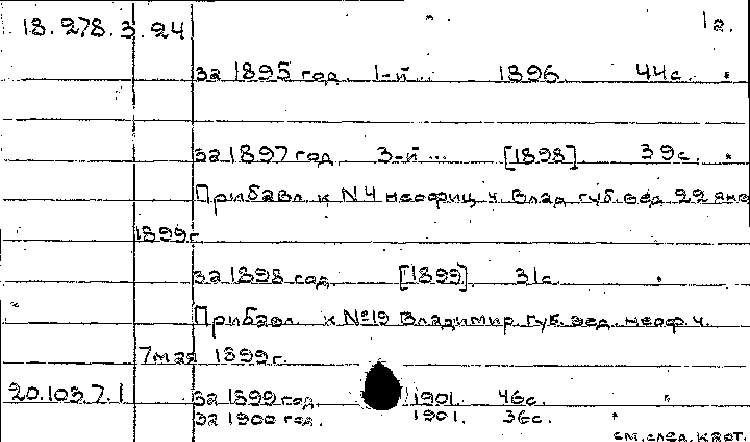 18.278.3.24 1г.
за 1895 год. 1-й ... 1896. 44с. *
за 1897 год. 3-й ... [1898] 39с. *
Прибавл. к N 4 неофиц. ч. Влад. губ. вед. 22 янв
1899 г.
за 1898 год. [1899] 31с. *
Прибавл. к №19 Владимир. губ. вед. неоф. ч.
7 мая 1899г.
20.103.7.1 за 1899 год. 1901. 46с. *
за 1900 год. 1901. 36с. *
см. след. карт.